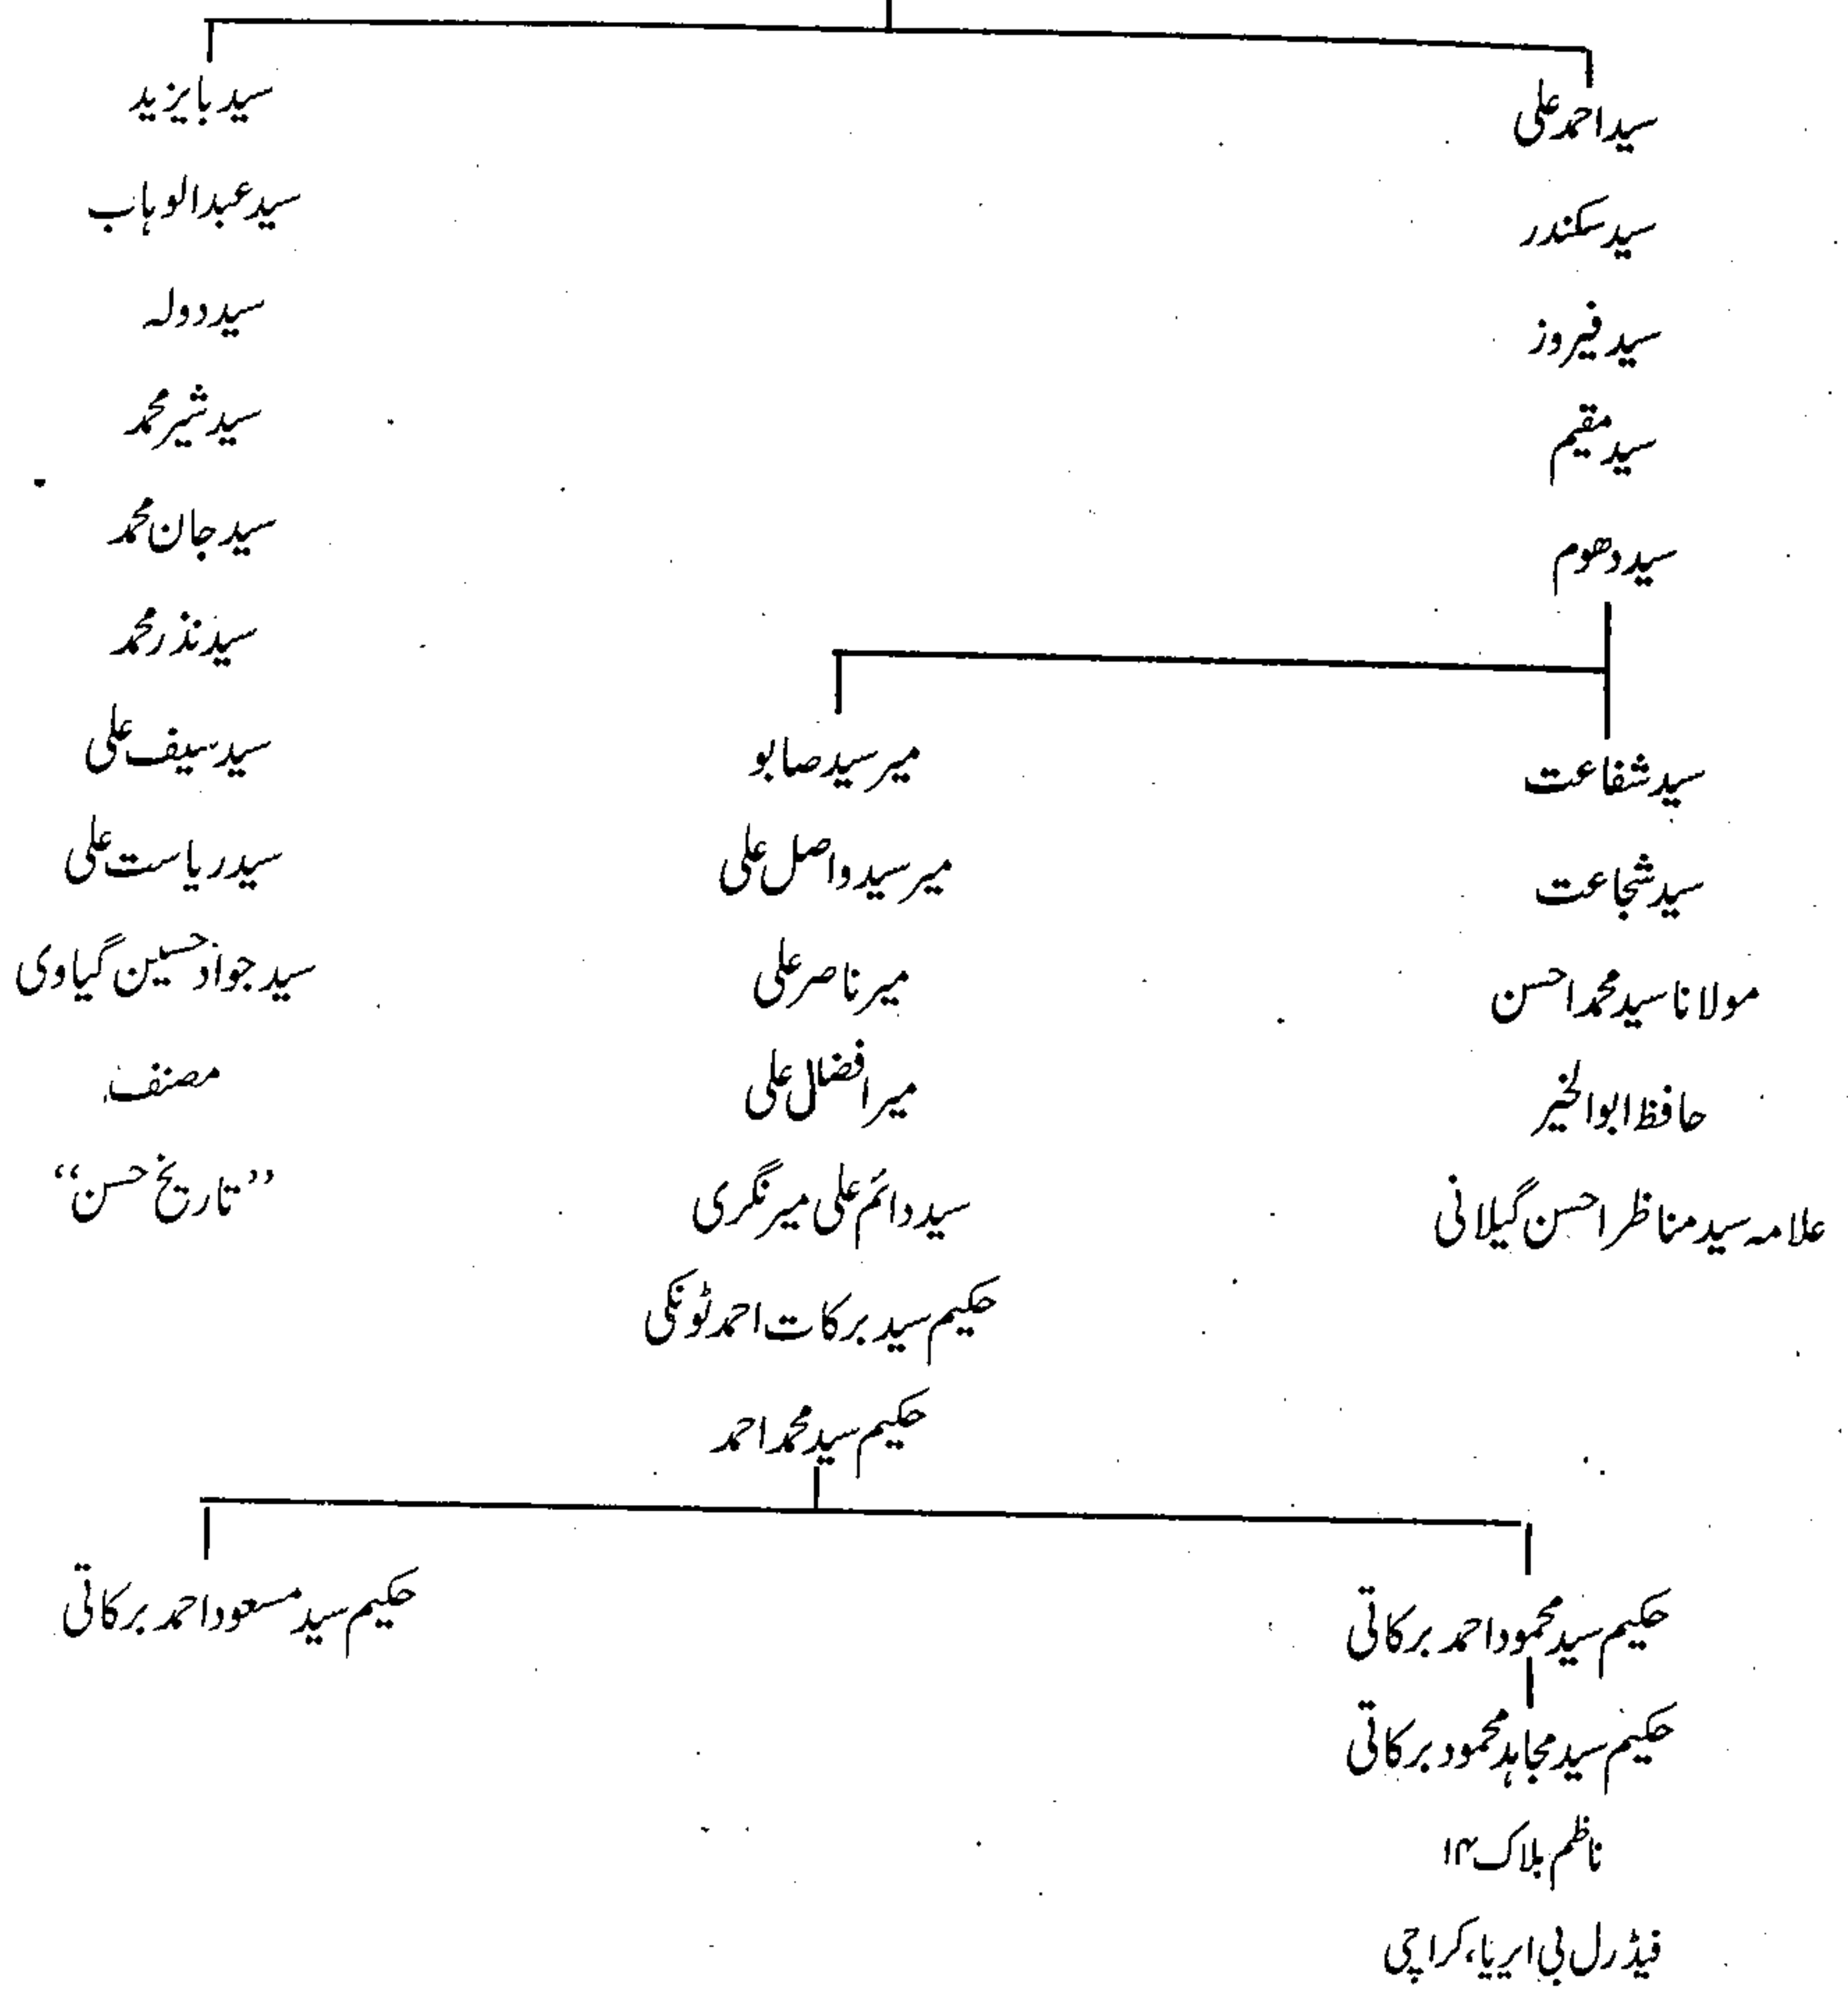 سید احمد علی
سید سکندر
سید فیروز
سید مقیم
سید دھوم
سید شفاعت
سید شجاعت
مولانا سید محمد احسن
حافظ ابوالخیر
علامہ سید مناظر احسن گیلانی
میر سید صابو
میر سید واصل علی
میر ناصر علی
میر افضل علی
سید دائم علی میر نگری
حکیم سید برکات احمد ٹونکی
حکیم سید محمد احمد
سید بایزید
سید عبدالوہاب
سید دولہ
سید شیر محمد
سید جان محمد
سید نذر محمد
سید سیف علی
سید ریاست علی
سید جواد حسین گیاوی
مصنف
”تاریخ حسن“
حکیم سید محمود احمد برکاتی
حکیم سید مجاہد محمود برکاتی
ناظم بلاک ۱۴
فیڈرل بی ایریا، کراچی
حکیم سید مسعود احمد برکاتی